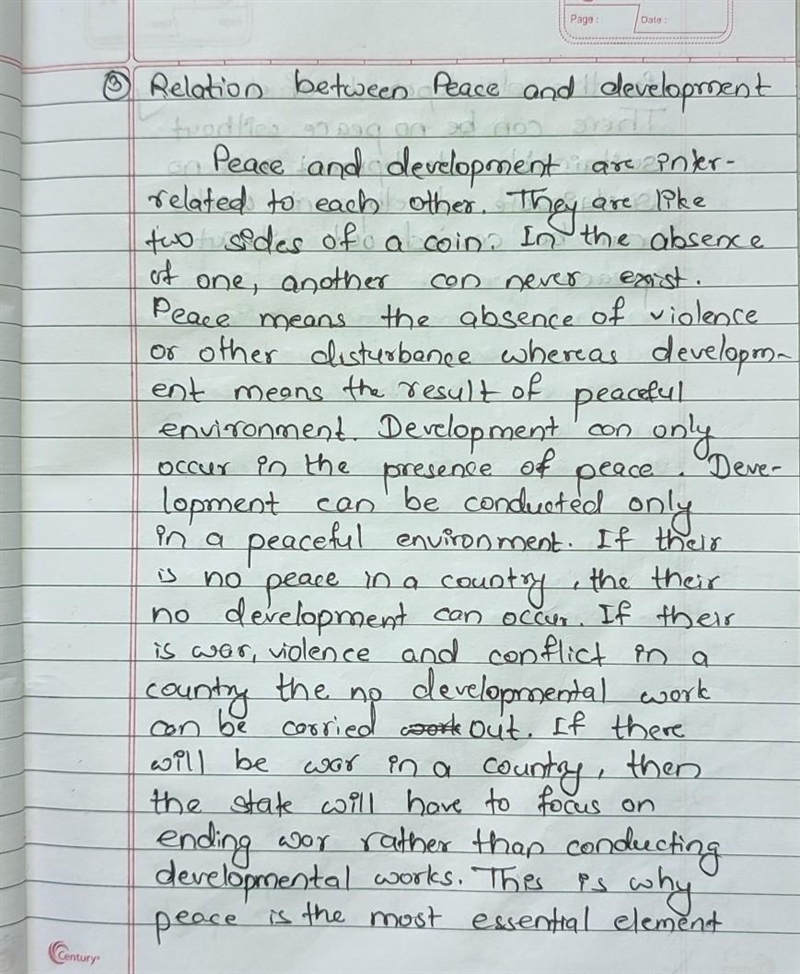 Page :
Date :
③ Relation between Peace and development
Peace and development are inter-
related to each other. They are like
two sides of a coin. In the absence
of one, another can never exist.
Peace means the absence of violence
or other disturbance whereas developm-
ent means the result of peaceful
environment. Development can only
occur in the presence of peace. Deve-
lopment can be conducted only
in a peaceful environment. If their
is no peace in a country, the their
no development can occur. If their
is war, violence and conflict in a
country the no developmental work
can be carried out. If there
will be war in a country, then
the state will have to focus on
ending war rather than conducting
developmental works. This is why
peace is the most essential element
Century